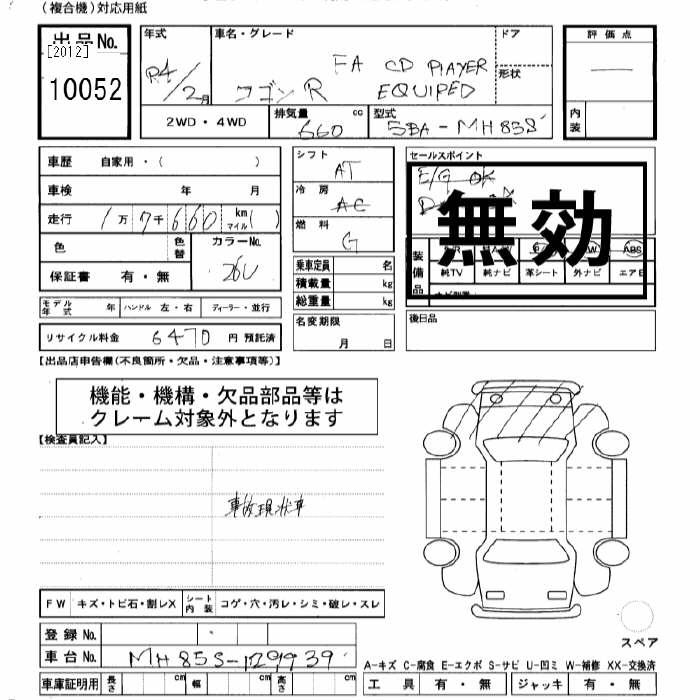 （複合機）対応用紙
出品No.
[2012]
10052
年式
R4/2月
車名・グレード
FA CD PLAYER
ワゴンR EQUIPED
ドア
形状
評価点
内装
2WD・4WD
排気量 660 cc
型式 5BA-MH85S
車歴 自家用・（ ）
車検 年 月
走行 1万7千660 km マイル( )
色 色替 カラーNo.
26U
保証書 有・無
モデル年式 年 ハンドル 左・右 ディーラー・並行
リサイクル料金 6470 円 預託済
シフト AT
冷房 AC
燃料 G
乗車定員 名
積載量 kg
総重量 kg
名変期限
月 日
セールスポイント
E/G OK
無効
装備品
ABS
純TV 純ナビ 革シート 外ナビ エアB
後日品
【出品店申告欄(不良箇所・欠品・注意事項等)】
機能・機構・欠品部品等は
クレーム対象外となります
【検査員記入】
事故現状車
FW キズ・トビ石・割レX シート内装 コゲ・穴・汚レ・シミ・破レ・スレ
登録No.
車台No. MH85S-129939
車庫証明用 長さ cm 幅 cm 高さ cm
スペア
A-キズ C-腐食 E-エクボ S-サビ U-凹ミ W-補修 XX-交換済
工具 有・無 ジャッキ 有・無